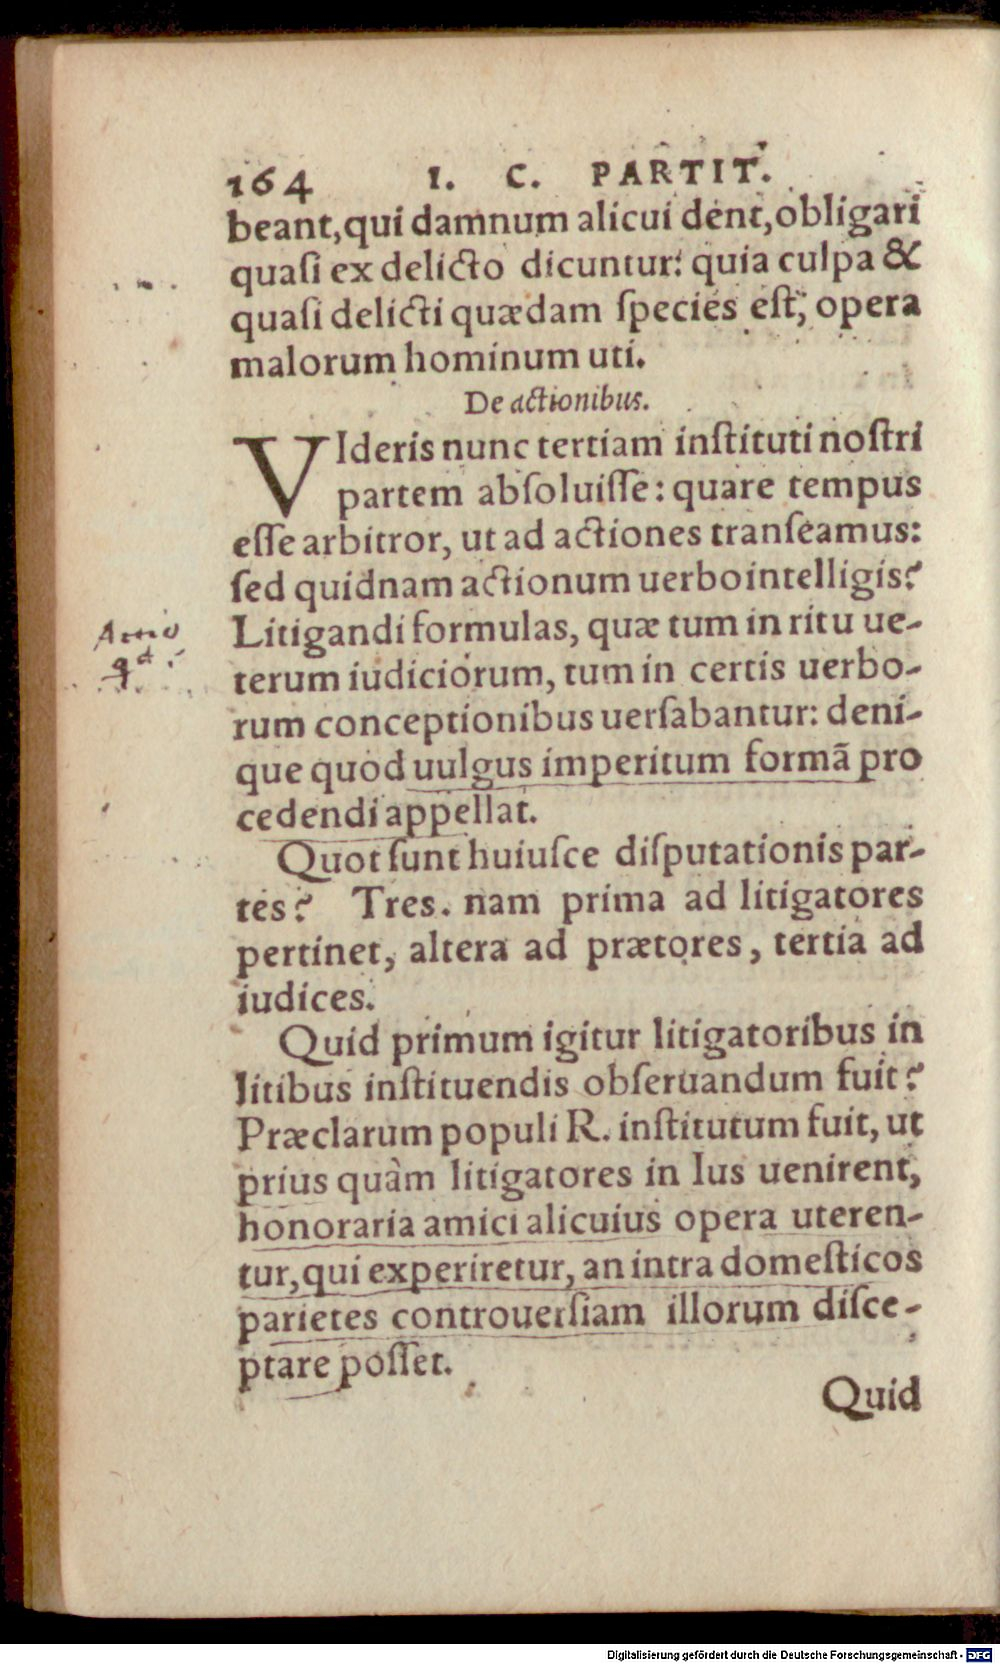 164 I. C. PARTIT.
beant,qui damnum alicui dent,obligari
quaſi ex delicto dicuntur: quia culpa &
quaſi delicti quædam ſpecies eſt, opera
malorum hominum uti.
De actionibus.
VIderis nunc tertiam inſtituti noſtri
partem abſoluiſſe: quare tempus
eſſe arbitror, ut ad actiones tranſeamus:
ſed quidnam actionum uerbo intelligis?
Litigandi formulas, quæ tum in ritu ue-
terum iudiciorum, tum in certis uerbo-
rum conceptionibus uerſabantur: deni-
que quod uulgus imperitum formã pro
cedendi appellat.
Quot ſunt huiuſce diſputationis par-
tes? Tres. nam prima ad litigatores
pertinet, altera ad prætores, tertia ad
iudices.
Quid primum igitur litigatoribus in
litibus inſtituendis obſeruandum fuit?
Præclarum populi R. inſtitutum fuit, ut
prius quàm litigatores in Ius uenirent,
honoraria amici alicuius opera uteren-
tur, qui experiretur, an intra domeſticos
parietes controuerſiam illorum diſce-
ptare poſſet.
Quid
Digitalisierung gefördert durch die Deutsche Forschungsgemeinschaft - DFG